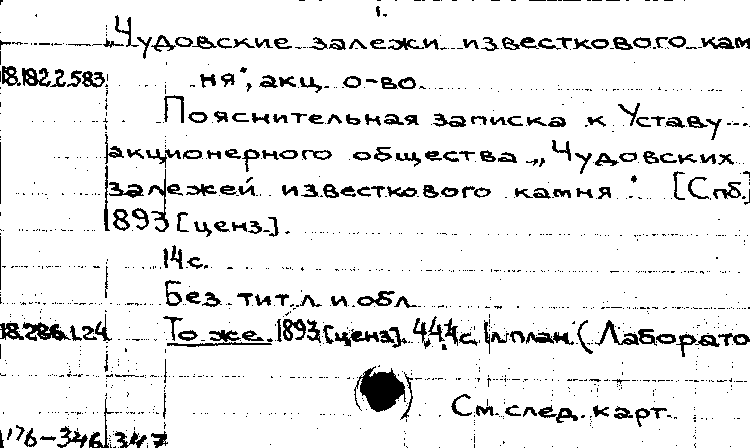 1.
„Чудовские залежи известкового кам
18.182.2.583 ня", акц. о-во.
Пояснительная записка к Уставу...
акционерного общества „Чудовских
залежей известкового камня". [Спб.]
1893 [ценз.].
14 с.
Без тит. л. и обл
18.286.1.24 То же. 1893 [ценз]. с. 1 л. план. (Лаборато
См. след. карт.
176-346.347